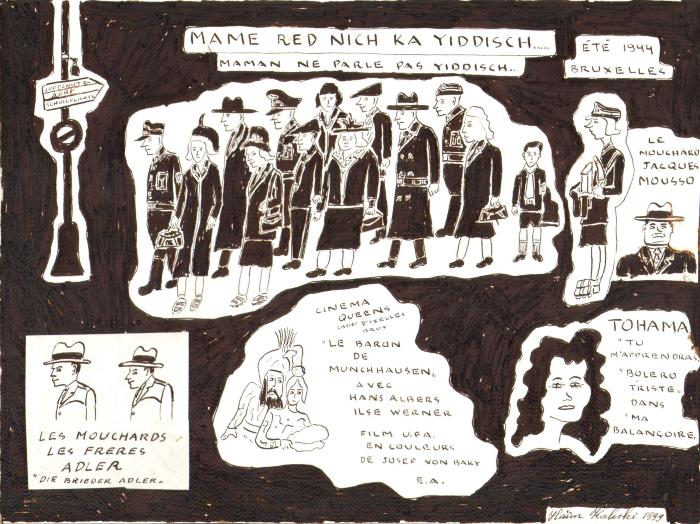 MAME RED NICH KA YIDDISCH....
MAMAN NE PARLE PAS YIDDISCH..
ÉTÉ 1944
BRUXELLES
SCHULFLRATZ
LE
MOUCHARD
JACQUES
MOUSSO
LES MOUCHARDS
LES FRÈRES
ADLER
"DIE BRIEDER ADLER."
CINEMA
QUEENS
D'IXELLES
BRUX
"LE BARON
DE
MUNCHHAUSEN"
AVEC
HANS ALBERS
ILSE WERNER
FILM U.F.A.
EN COULEURS
DE JOSEF VON BAKY
E.A.
TOHAMA
"TU
M'APPRENDRA
"BOLERO
TRISTE"
DANS
"MA
BALANÇOIRE
Haïm Kaliski 1999